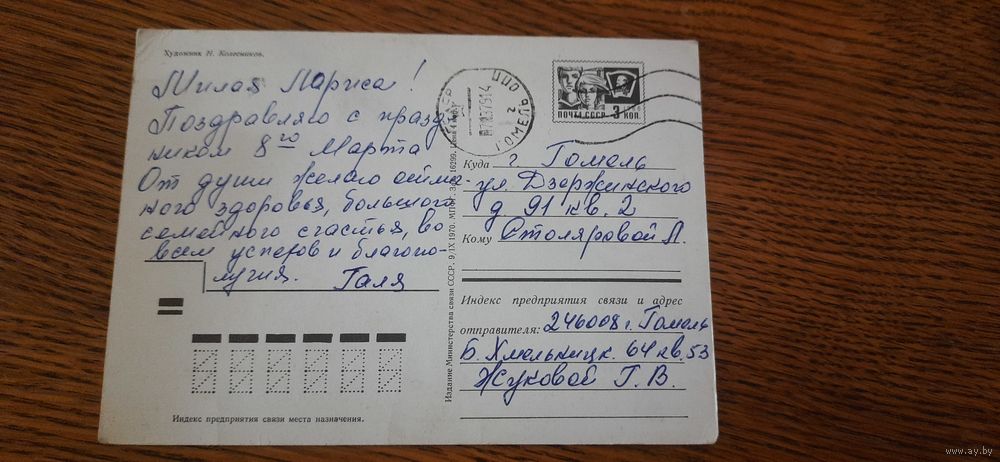 Художник Н. Колесников.
Милая Лариса!
Поздравляю с празд-
ником 8го Марта
От души желаю
ного здоровья, большого
семейного счастья, во
всем успехов и благопо-
лучия. Галя
Индекс предприятия связи места назначения.
Издание Министерства связи СССР. 9/IX 1970.
ГОМЕЛЬ
ПОЧТА СССР 3 КОП.
Куда г. Гомель
ул. Дзержинского
д 91 кв. 2
Кому Столяровой Л.
Индекс предприятия связи и адрес
отправителя: 246008 г. Гомель
Б. Хмельницк. 64 кв. 53
Жуковой Г. В.
www.ay.by